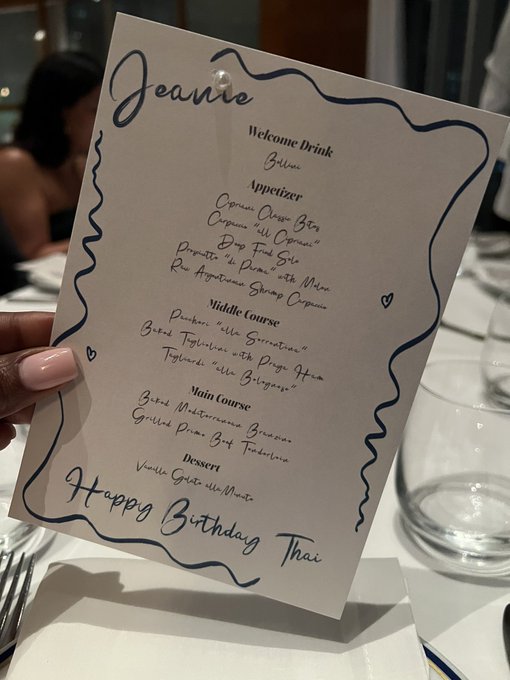 Jeanie
Welcome Drink
Bellini
Appetizer
Cipriani Classic Bites
Carpaccio "all Cipriani"
Deep Fried Sole
Prosciutto "di Parma" with Melon
Raw Argentinain Shrimp Carpaccio
Middle Course
Paccheri "alla Sorrentina"
Baked Tagliolini with Praga Ham
Tagliardi "alla Bolognese"
Main Course
Baked Mediterranean Branzino
Grilled Prime Beef Tenderloin
Dessert
Vanilla Gelato allaMinute
Happy Birthday Thai